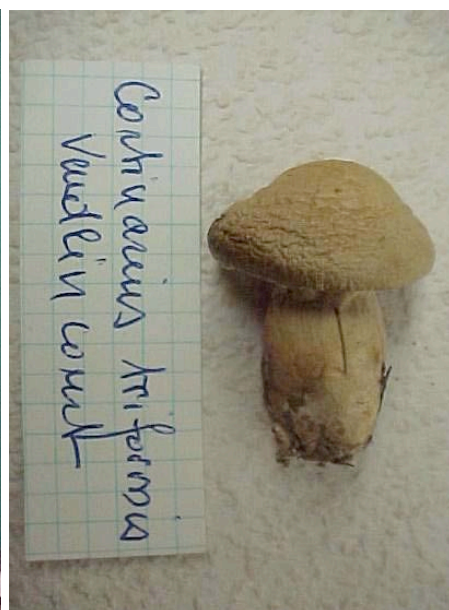 Cortinarius triformis
Vendlin court